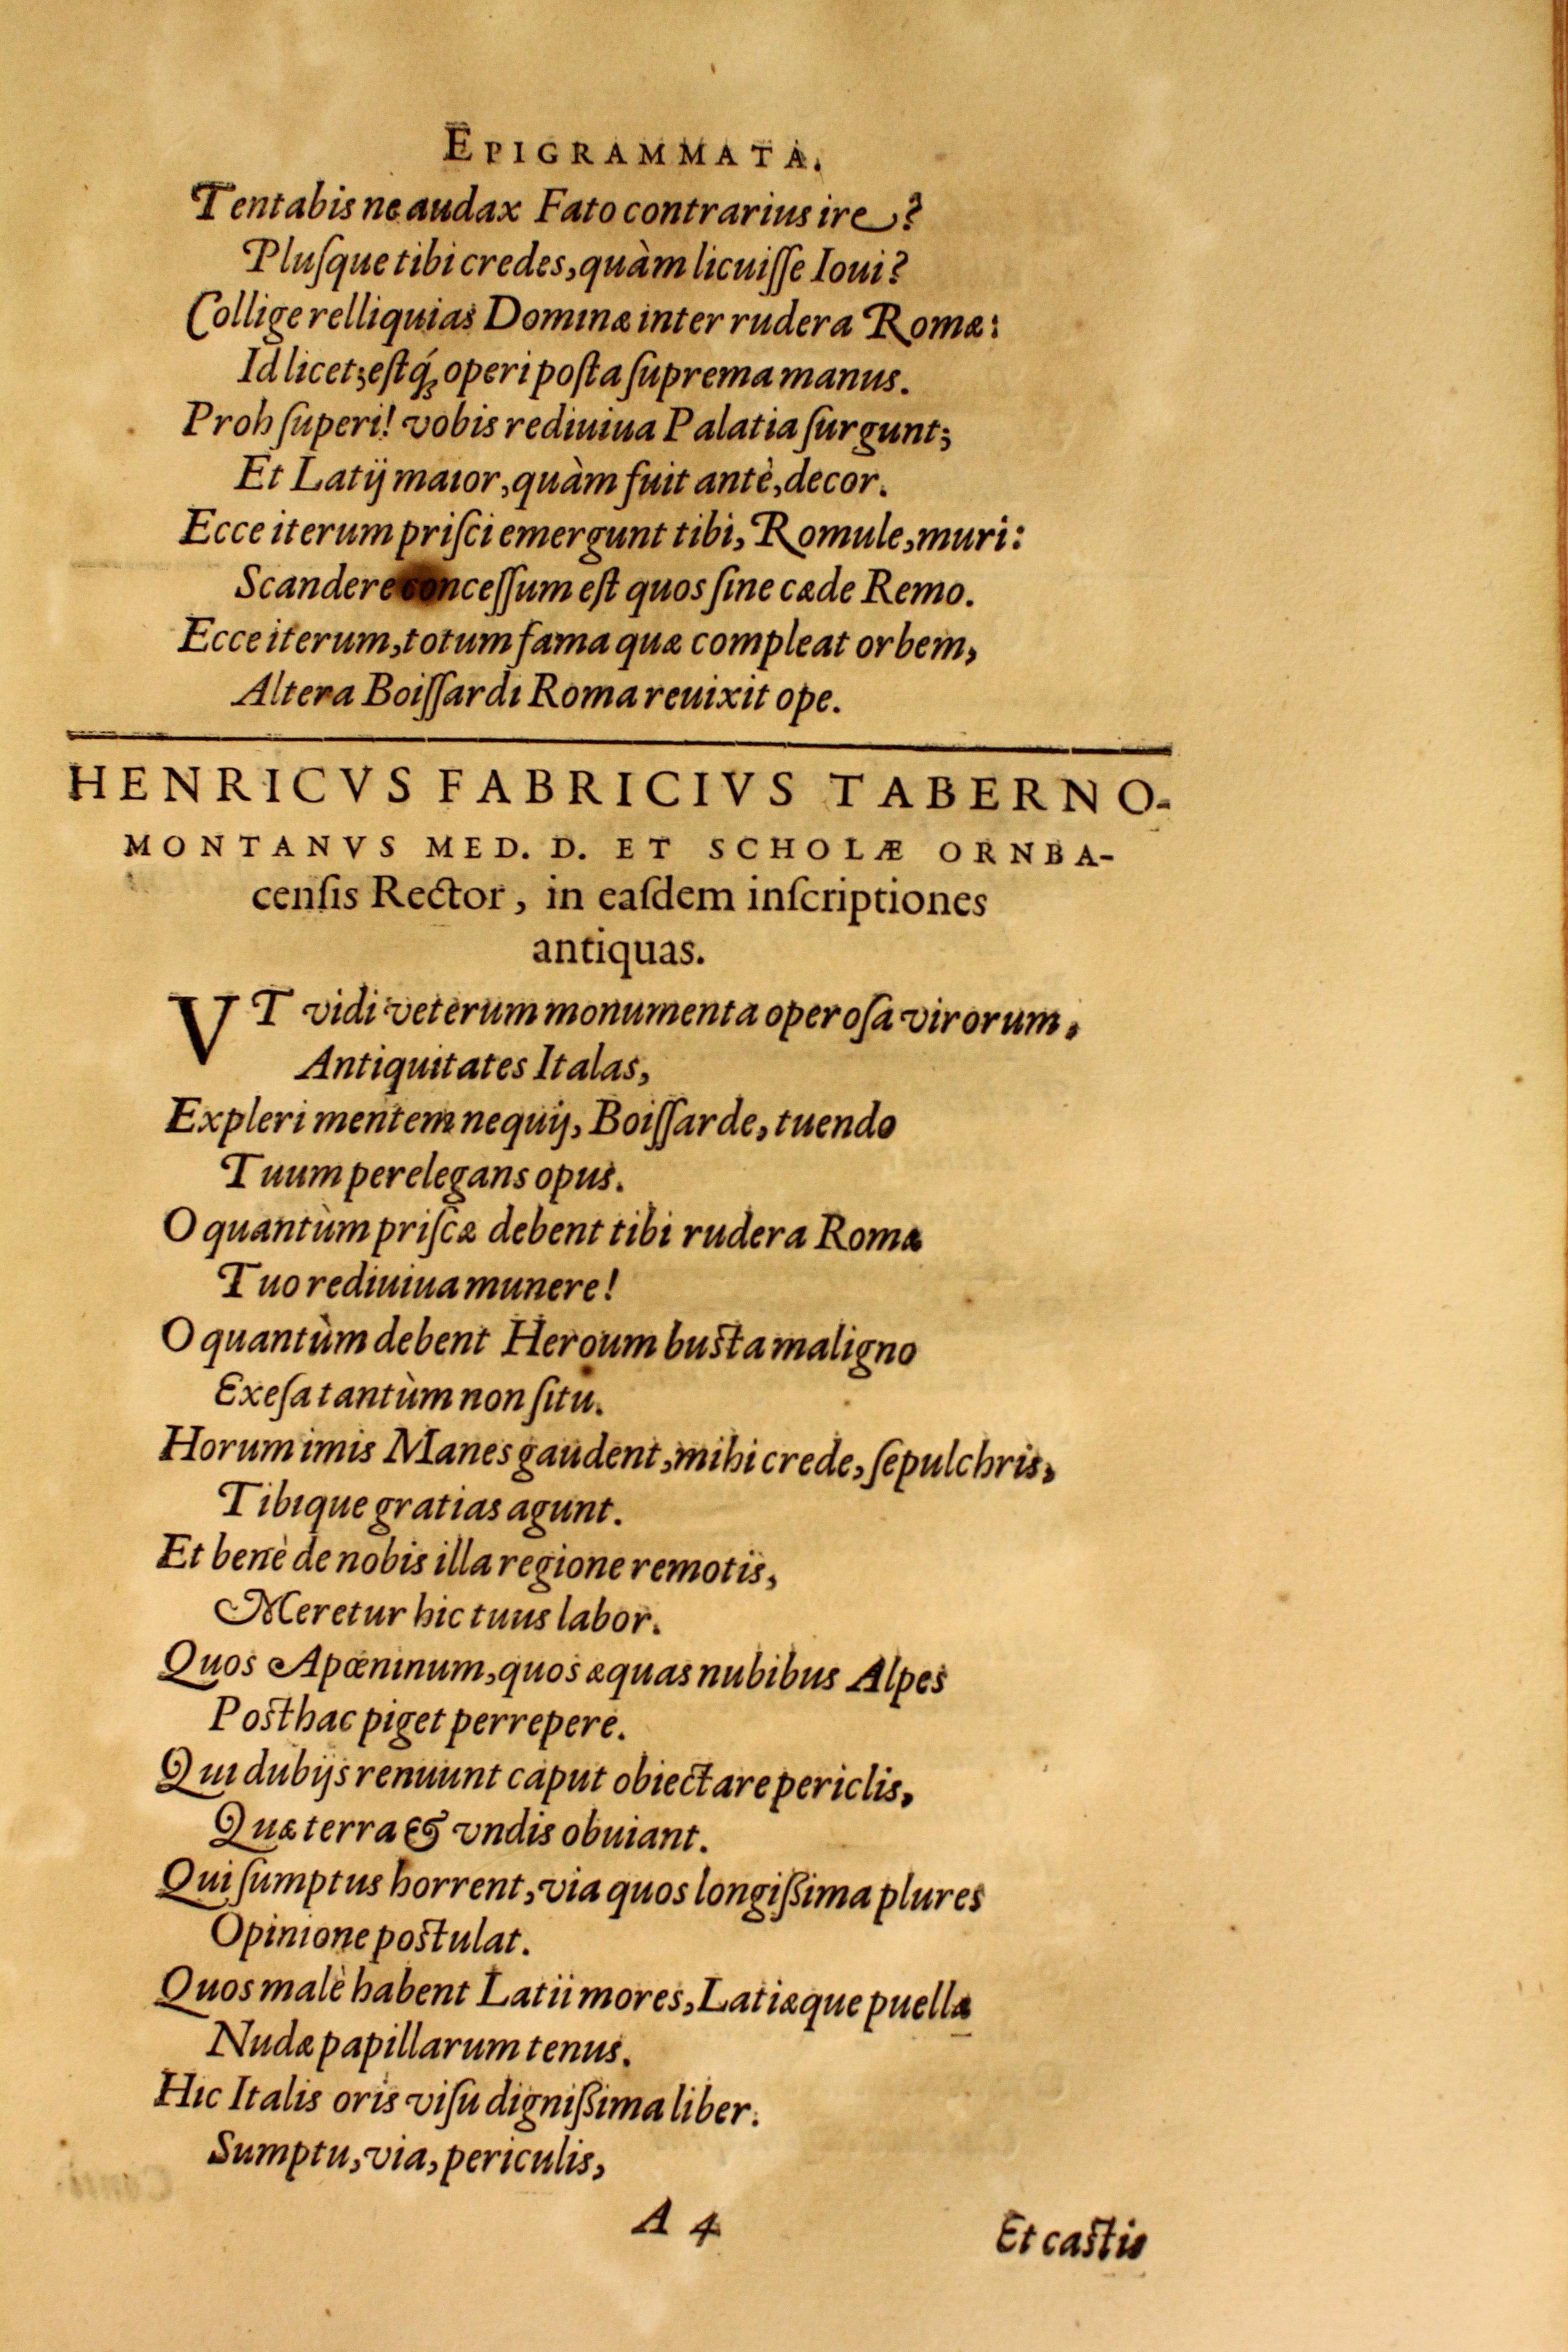 EPIGRAMMATA.
Tentabis ne audax Fato contrarius ire?
Pluſque tibi credes, quàm licuiſſe Ioui?
Collige relliquias Dominæ inter rudera Romæ:
Id licet; eſtq́; operi poſta ſuprema manus.
Proh ſuperi! vobis rediuiua Palatia ſurgunt;
Et Latij maior, quàm fuit antè, decor.
Ecce iterum priſci emergunt tibi, Romule, muri:
Scandere conceſſum eſt quos ſine cæde Remo.
Ecce iterum, totum fama quæ compleat orbem,
Altera Boiſſardi Roma reuixit ope.
HENRICVS FABRICIVS TABERNO-
MONTANVS MED. D. ET SCHOLÆ ORNBA-
cenſis Rector, in eaſdem inſcriptiones
antiquas.
VT vidi veterum monumenta operoſa virorum,
Antiquitates Italas,
Expleri mentem nequij, Boiſſarde, tuendo
Tuum perelegans opus.
O quantùm priſcæ debent tibi rudera Romæ
Tuo rediuiua munere!
O quantùm debent Heroum buſta maligno
Exeſa tantùm non ſitu.
Horum imis Manes gaudent, mihi crede, ſepulchris,
Tibique gratias agunt.
Et benè de nobis illa regione remotis,
Meretur hic tuus labor.
Quos Apœninum, quos æquas nubibus Alpes
Poſthac piget perrepere.
Qui dubijs renuunt caput obiectare periclis,
Quæ terra & vndis obuiant.
Qui ſumptus horrent, via quos longißima plures
Opinione poſtulat.
Quos malè habent Latii mores, Latiæque puellæ
Nudæ papillarum tenus.
Hic Italis oris viſu dignißima liber.
Sumptu, via, periculis,
A 4
Et caſtis